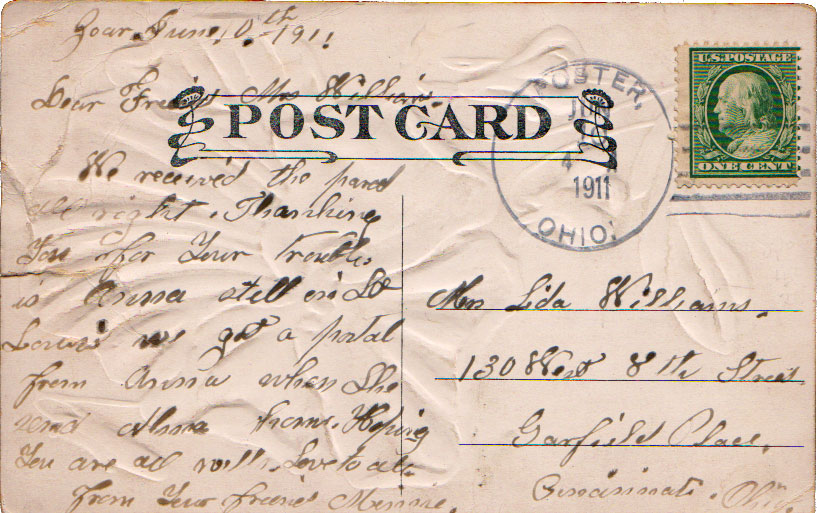 Zoar, June, 10th 1911
Dear Friend Mrs Williams.
POST CARD
We received the parcel
all right, Thanking
You for Your trouble,
is Anna still in St
Louis we got a postal
from Anna when She
send Alma home. Hoping
You are all well. Love to all
From Your friend Minnie.
FOSTER,
4
1911
OHIO.
U.S. POSTAGE
ONE CENT
Mrs Lida Williams.
130 West 8th Street
Garfield Place,
Cincinnati. Ohio.